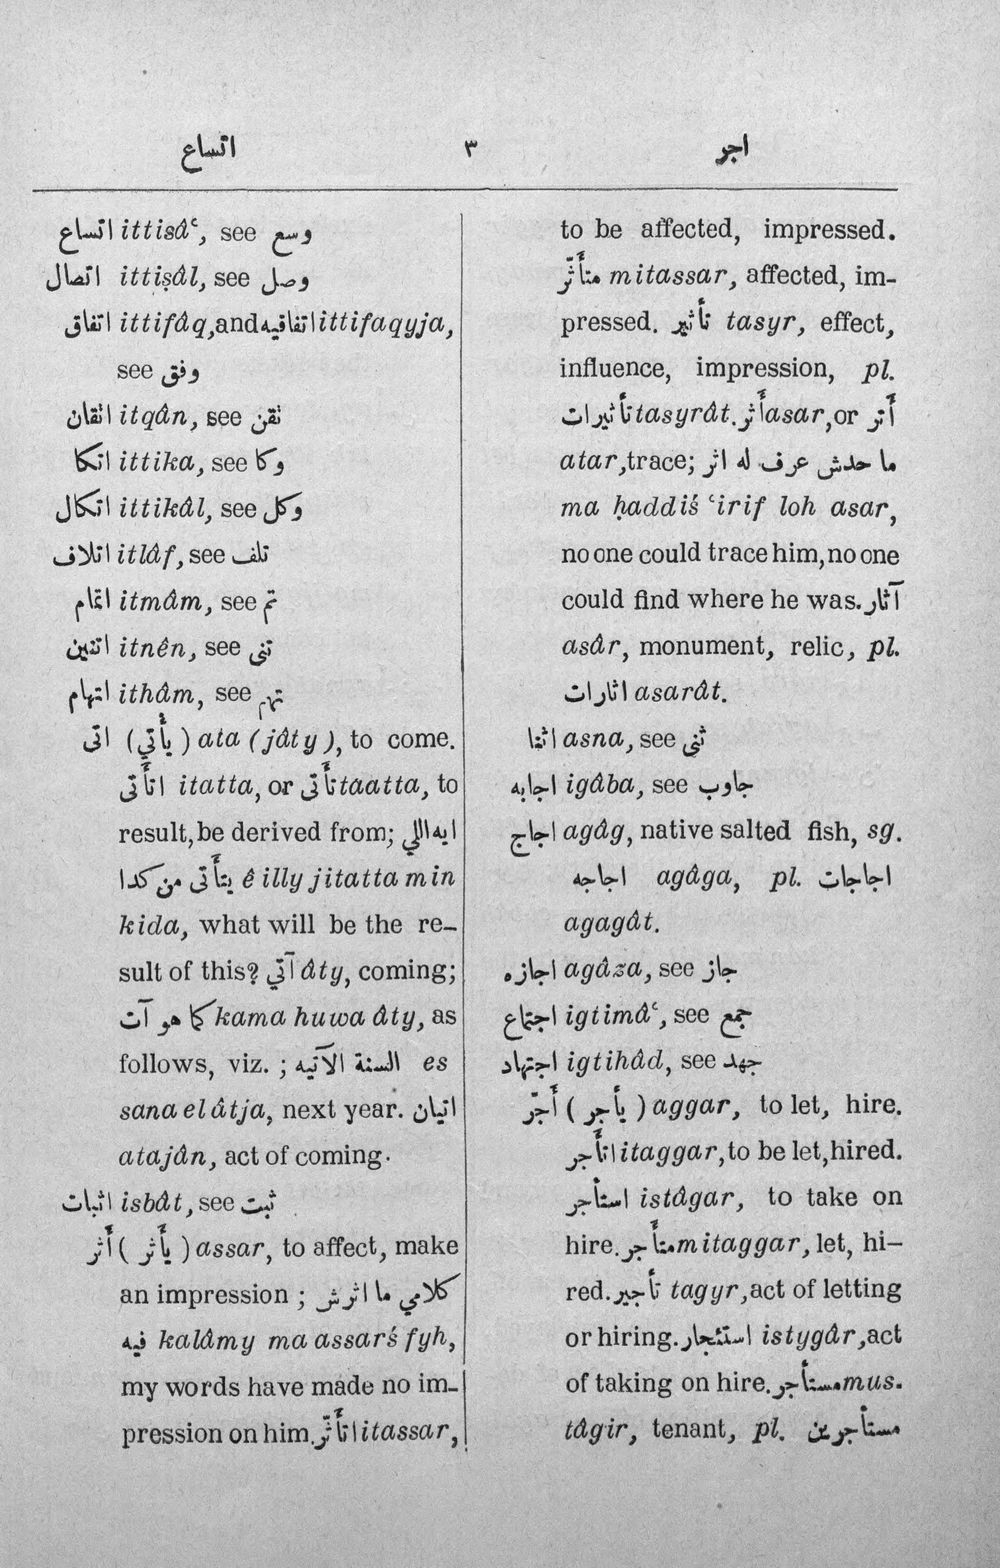 اتساع ٣ اجر
اتساع ittisâʿ, see وسع
اتصال ittiṣâl, see وصل
اتفاق ittifâq, and اتفاقيه ittifaqyja,
see وفق
اتقان itqân, see تقن
اتكا ittika, see وكا
اتكال ittikâl, see وكل
اتلاف itlâf, see تلف
اتمام itmâm, see تم
اتنين itnên, see تنى
اتهام ithâm, see تهم
اتى (يأتي) ata (jâty), to come.
اتأتى itatta, or تأتى taatta, to
result, be derived from; ايه اللي
يتأتى من كدا ê illy jitatta min
kida, what will be the re-
sult of this? آتي âty, coming;
كما هو آت kama huwa âty, as
follows, viz. ; السنة الآتيه es
sana el âtja, next year. اتيان
atajân, act of coming.
اثبات isbât, see ثبت
أثر (يأثر) assar, to affect, make
an impression ; كلامي ما اثرش
فيه kalâmy ma assarś fyh,
my words have made no im-
pression on him. اتأثّر itassar,
to be affected, impressed.
متأثّر mitassar, affected, im-
pressed. تأثير tasyr, effect,
influence, impression, pl.
تأثيرات tasyrât. أثر asar, or أتر
atar, trace; ما حدش عرف له اثر
ma ḥaddiś ʿirif loh asar,
no one could trace him, no one
could find where he was. آثار
asâr, monument, relic, pl.
اثارات asarât.
اثنا asna, see ثنى
اجابه igâba, see جاوب
اجاج agâg, native salted fish, sg.
اجاجه agâga, pl. اجاجات
agagât.
اجازه agâza, see جاز
اجتماع igtimâʿ, see جمع
اجتهاد igtihâd, see جهد
أجّر (يأجر) aggar, to let, hire.
اتأجر itaggar, to be let, hired.
استأجر istâgar, to take on
hire. متأجر mitaggar, let, hi-
red. تأجير tagyr, act of letting
or hiring. استئجار istygâr, act
of taking on hire. مستأجر mus-
tâgir, tenant, pl. مستأجرين